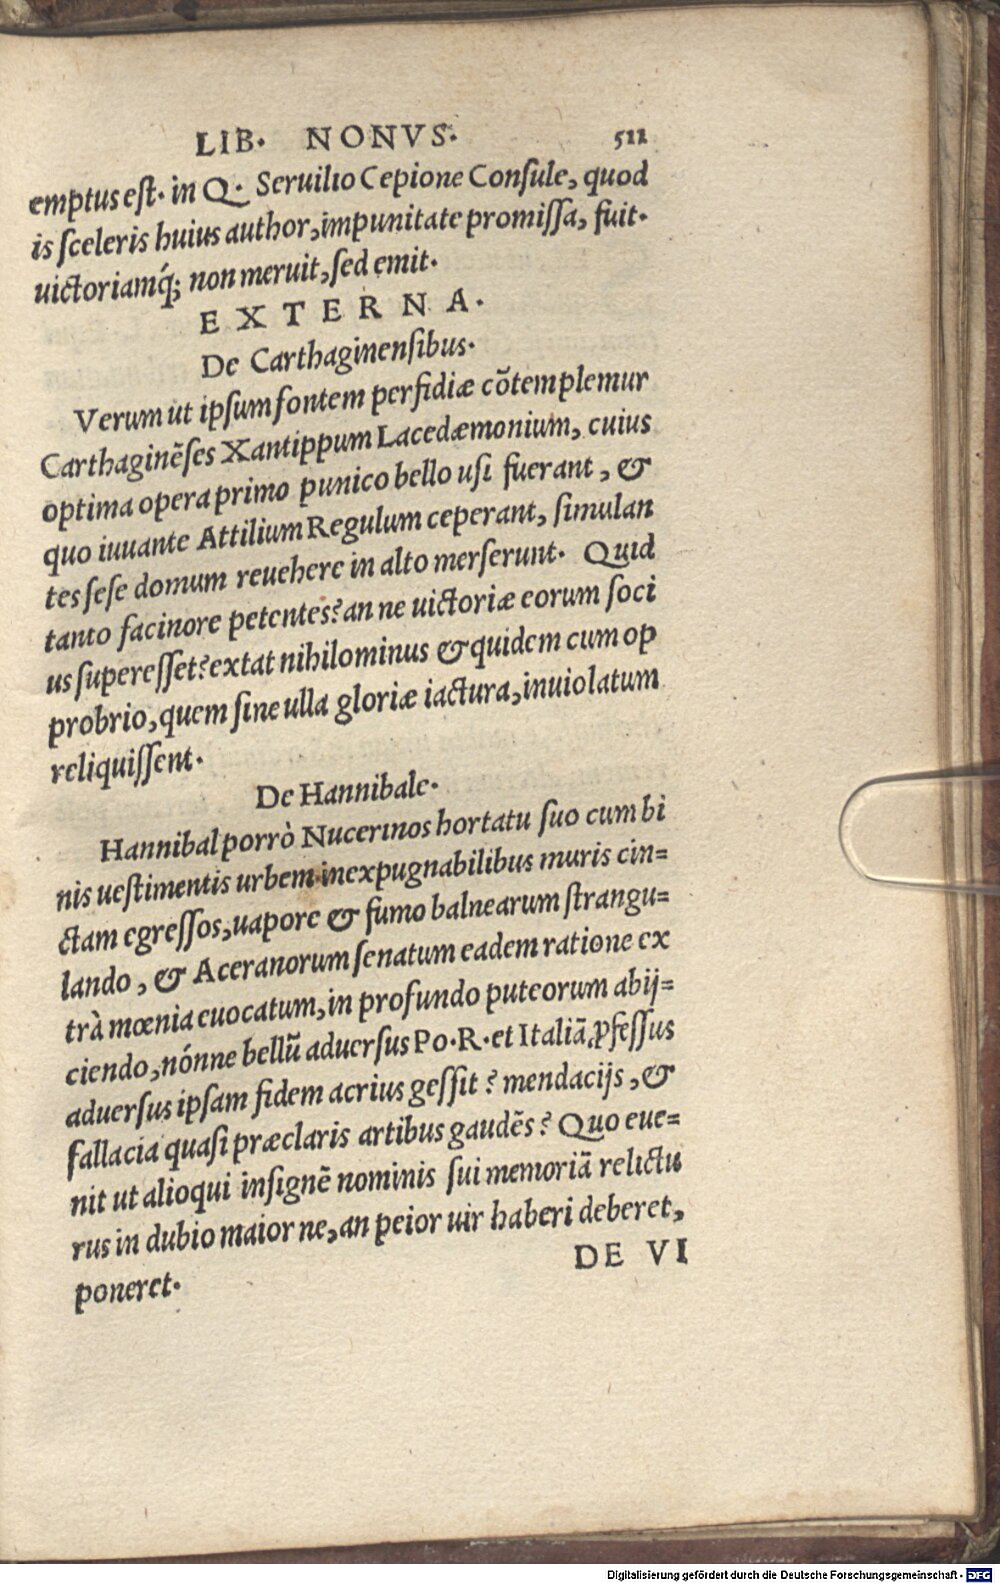 LIB. NONVS. 511
emptus est. in Q. Seruilio Cepione Consule, quod
is sceleris huius author, impunitate promissa, fuit.
uictoriamq́; non meruit, sed emit.
EXTERNA.
De Carthaginensibus.
Verum ut ipsum fontem perfidiæ cõtemplemur
Carthaginẽses Xantippum Lacedæmonium, cuius
optima opera primo punico bello usi fuerant, &
quo iuuante Attilium Regulum ceperant, simulan
tes sese domum reuehere in alto merserunt. Quid
tanto facinore petentes? an ne uictoriæ eorum soci
us superesset? extat nihilominus & quidem cum op
probrio, quem sine ulla gloriæ iactura, inuiolatum
reliquissent.
De Hannibale.
Hannibal porrò Nucerinos hortatu suo cum bi
nis uestimentis urbem inexpugnabilibus muris cin=
ctam egressos, uapore & fumo balnearum strangu=
lando, & Aceranorum senatum eadem ratione ex
trà mœnia euocatum, in profundo puteorum abij=
ciendo, nónne bellũ aduersus Po. R. et Italiã, ꝓfessus
aduersus ipsam fidem acrius gessit? mendacijs, &
fallacia quasi præclaris artibus gaudẽs? Quo eue=
nit ut alioqui insignẽ nominis sui memoriã relictu
rus in dubio maior ne, an peior uir haberi deberet,
poneret.
DE VI
Digitalisierung gefördert durch die Deutsche Forschungsgemeinschaft - DFG